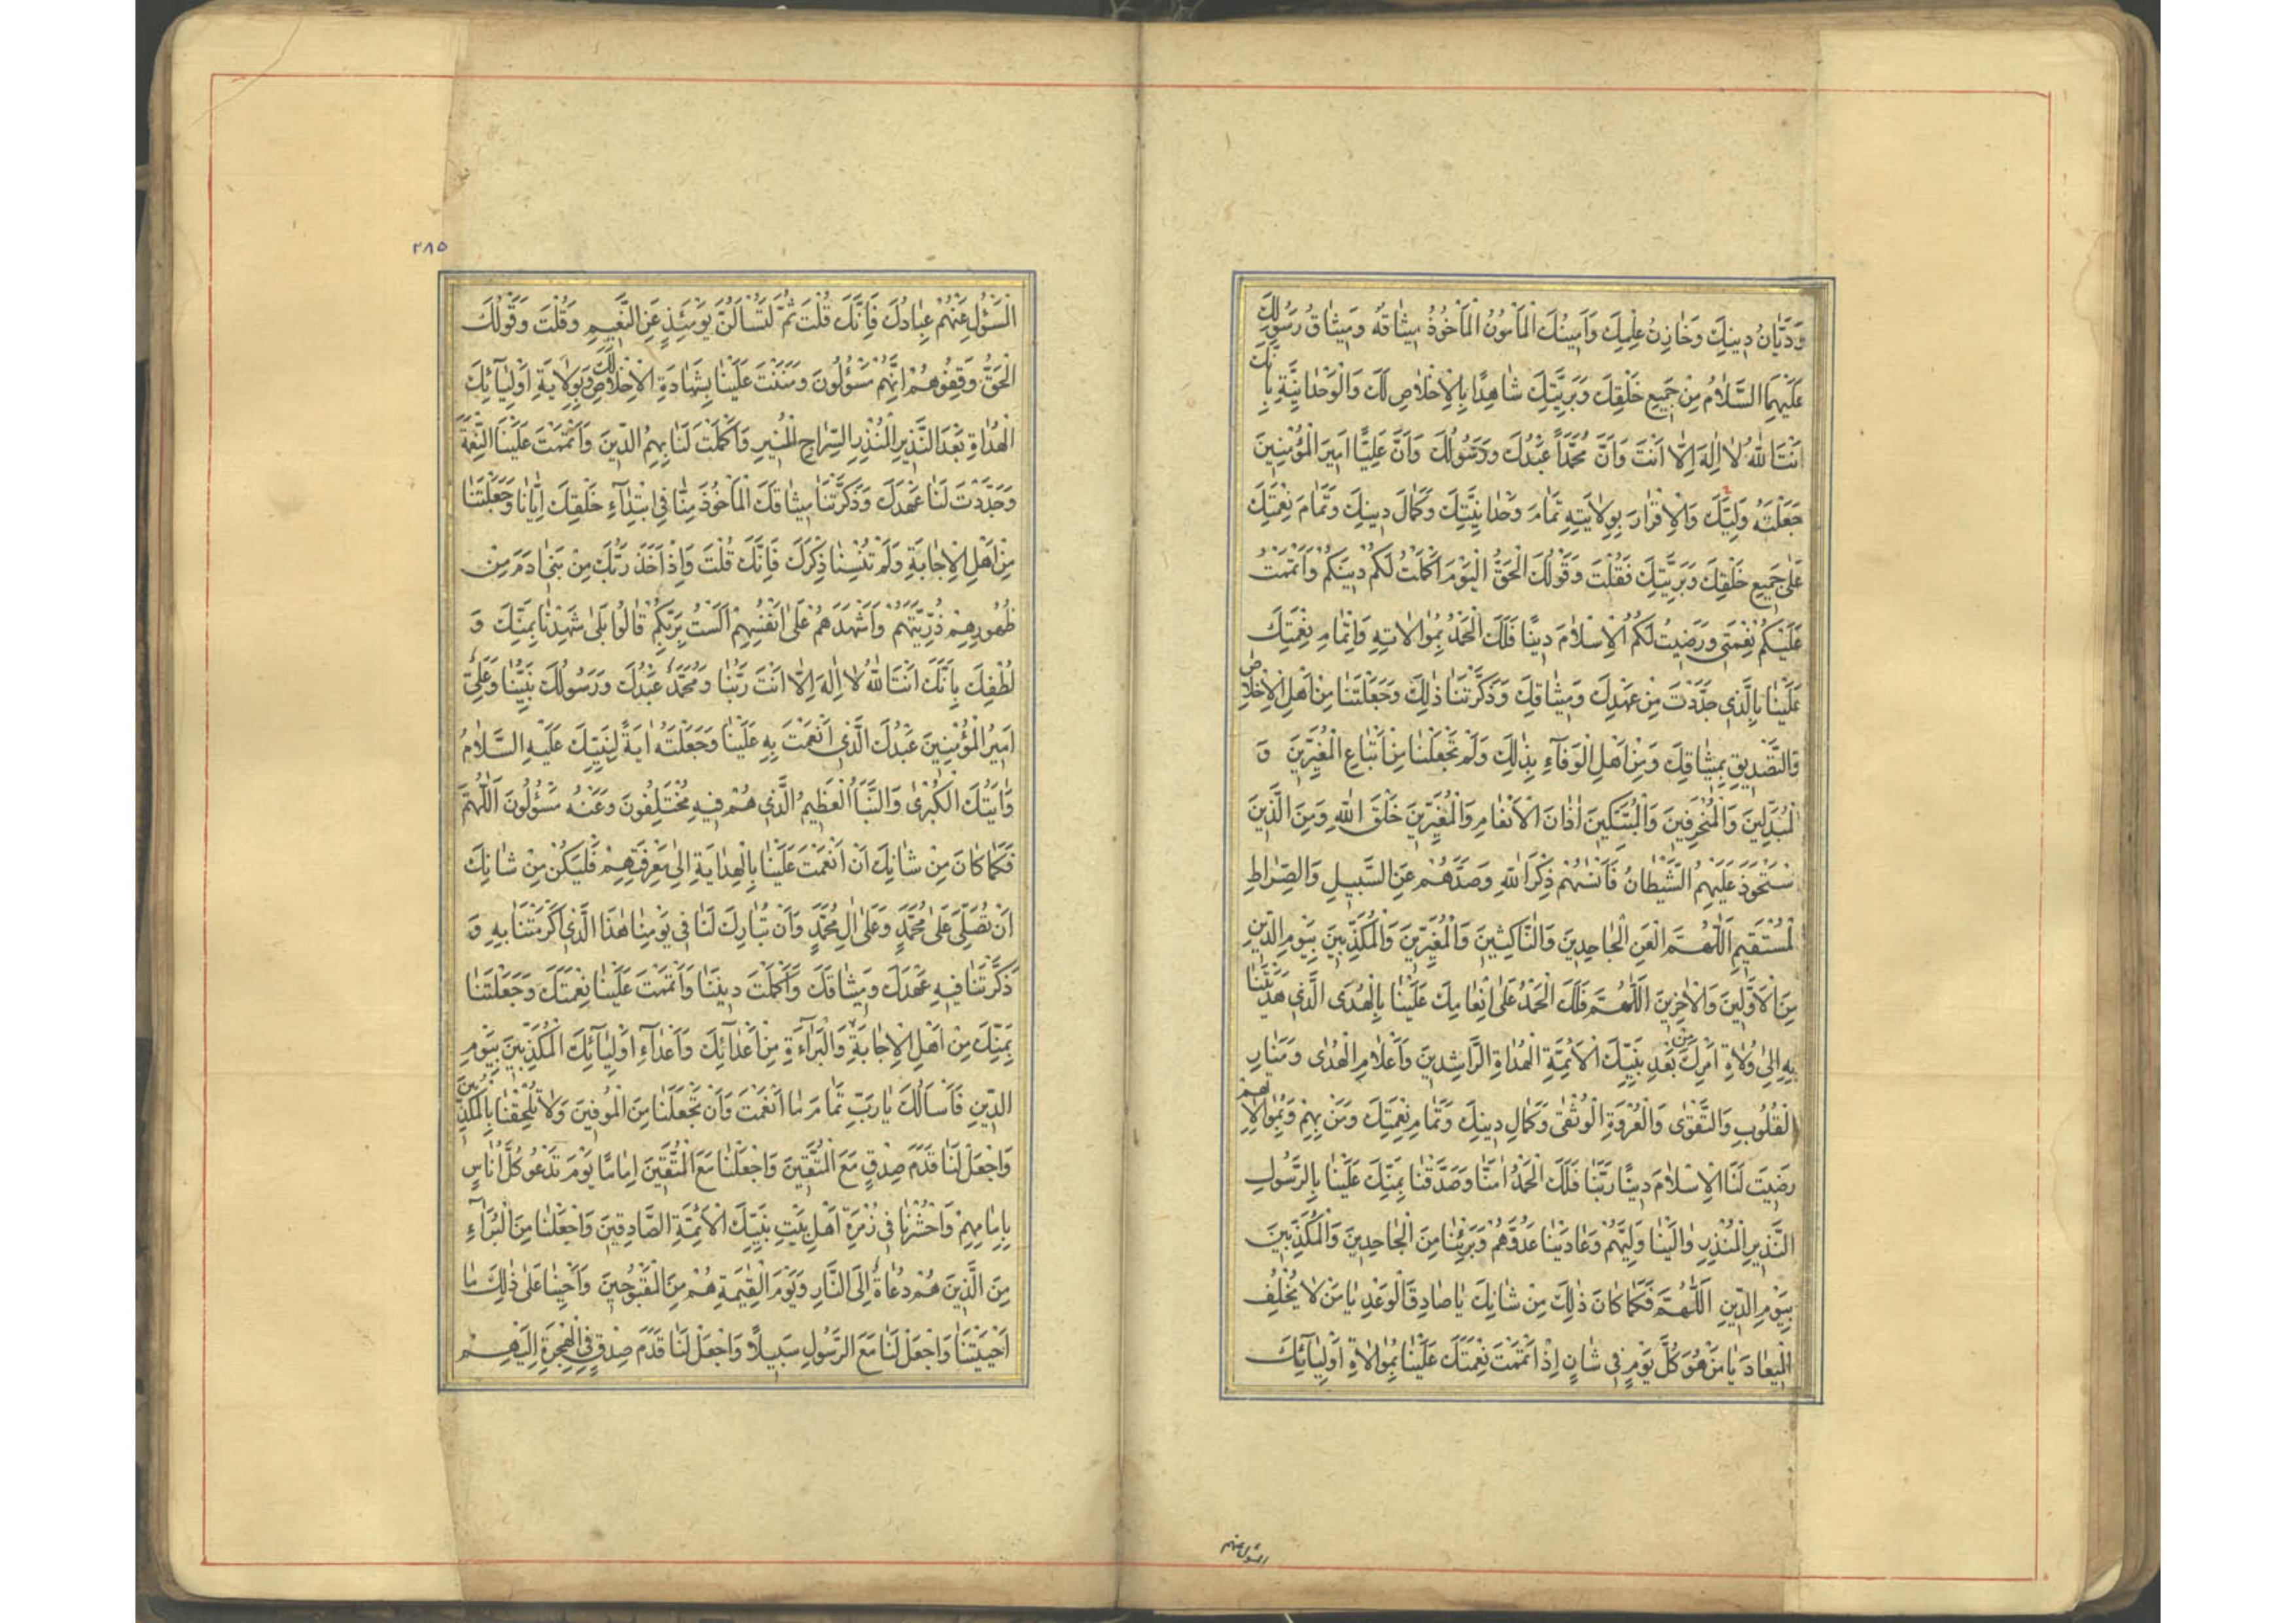 وَدَيَّانُ دِينِكَ وَخَازِنُ عِلْمِكَ وَاَمِينُكَ الْمَأْمُونُ الْمَأْخُوذُ مِيثَاقُهُ وَمِيثَاقُ رَسُولِكَ
عَلَيْهِمَا السَّلَامُ مِنْ جَمِيعِ خَلْقِكَ وَبَرِيَّتِكَ شَاهِدًا بِالْاِخْلَاصِ لَكَ وَالْوَحْدَانِيَّةِ بِاَنَّكَ
اَنْتَ اللّٰهُ لَا اِلٰهَ اِلَّا اَنْتَ وَاَنَّ مُحَمَّدًا عَبْدُكَ وَرَسُولُكَ وَاَنَّ عَلِيًّا اَمِيرَ الْمُؤْمِنِينَ
جَعَلْتَهُ وَلِيَّكَ وَالْاِقْرَارَ بِوِلَايَتِهِ تَمَامَ وَحْدَانِيَّتِكَ وَكَمَالَ دِينِكَ وَتَمَامَ نِعْمَتِكَ
عَلٰى جَمِيعِ خَلْقِكَ وَبَرِيَّتِكَ فَقُلْتَ وَقَوْلُكَ الْحَقُّ الْيَوْمَ اَكْمَلْتُ لَكُمْ دِينَكُمْ وَاَتْمَمْتُ
عَلَيْكُمْ نِعْمَتِي وَرَضِيتُ لَكُمُ الْاِسْلَامَ دِينًا فَلَكَ الْحَمْدُ بِمُوَالَاتِهِ وَاِتْمَامِ نِعْمَتِكَ
عَلَيْنَا بِالَّذِي جَدَّدْتَ مِنْ عَهْدِكَ وَمِيثَاقِكَ وَذَكَّرْتَنَا ذٰلِكَ وَجَعَلْتَنَا مِنْ اَهْلِ الْاِخْلَاصِ
وَالتَّصْدِيقِ بِمِيثَاقِكَ وَمِنْ اَهْلِ الْوَفَاءِ بِذٰلِكَ وَلَمْ تَجْعَلْنَا مِنْ اَتْبَاعِ الْمُغَيِّرِينَ وَ
الْمُبَدِّلِينَ وَالْمُنْحَرِفِينَ وَالْمُبَتِّكِينَ اٰذَانَ الْاَنْعَامِ وَالْمُغَيِّرِينَ خَلْقَ اللّٰهِ وَمِنَ الَّذِينَ
سْتَحْوَذَ عَلَيْهِمُ الشَّيْطَانُ فَاَنْسٰهُمْ ذِكْرَ اللّٰهِ وَصَدَّهُمْ عَنِ السَّبِيلِ وَالصِّرَاطِ
لْمُسْتَقِيمِ اَللّٰهُمَّ الْعَنِ الْجَاحِدِينَ وَالنَّاكِثِينَ وَالْمُغَيِّرِينَ وَالْمُكَذِّبِينَ بِيَوْمِ الدِّينِ
مِنَ الْاَوَّلِينَ وَالْاٰخِرِينَ اَللّٰهُمَّ فَلَكَ الْحَمْدُ عَلٰى اِنْعَامِكَ عَلَيْنَا بِالْهُدَى الَّذِي هَدَيْتَنَا
بِهِ اِلٰى وُلَاةِ اَمْرِكَ مِنْ بَعْدِ نَبِيِّكَ الْاَئِمَّةِ الْهُدَاةِ الرَّاشِدِينَ وَاَعْلَامِ الْهُدٰى وَمَنَارِ
الْقُلُوبِ وَالتَّقْوٰى وَالْعُرْوَةِ الْوُثْقٰى وَكَمَالِ دِينِكَ وَتَمَامِ نِعْمَتِكَ وَمَنْ بِهِمْ وَبِمُوَالَاتِهِمْ
رَضِيتَ لَنَا الْاِسْلَامَ دِينًا رَبَّنَا فَلَكَ الْحَمْدُ اٰمَنَّا وَصَدَّقْنَا بِمَنِّكَ عَلَيْنَا بِالرَّسُولِ
النَّذِيرِ الْمُنْذِرِ وَالَيْنَا وَلِيَّهُمْ وَعَادَيْنَا عَدُوَّهُمْ وَبَرِئْنَا مِنَ الْجَاحِدِينَ وَالْمُكَذِّبِينَ
بِيَوْمِ الدِّينِ اَللّٰهُمَّ فَكَمَا كَانَ ذٰلِكَ مِنْ شَانِكَ يَا صَادِقَ الْوَعْدِ يَا مَنْ لَا يُخْلِفُ
الْمِيعَادَ يَا مَنْ هُوَ كُلَّ يَوْمٍ فِي شَانٍ اِذْ اَتْمَمْتَ نِعْمَتَكَ عَلَيْنَا بِمُوَالَاةِ اَوْلِيَائِكَ
المسئول عنهم
٢٨٥
الْمَسْؤُلِ عَنْهُمْ عِبَادُكَ فَاِنَّكَ قُلْتَ ثُمَّ لَتُسْاَلُنَّ يَوْمَئِذٍ عَنِ النَّعِيمِ وَقُلْتَ وَقَوْلُكَ
الْحَقُّ وَقِفُوهُمْ اِنَّهُمْ مَسْؤُلُونَ وَمَنَنْتَ عَلَيْنَا بِشَهَادَةِ الْاِخْلَاصِ لَكَ وَبِوِلَايَةِ اَوْلِيَائِكَ
الْهُدَاةِ بَعْدَ النَّذِيرِ الْمُنْذِرِ السِّرَاجِ الْمُنِيرِ وَاَكْمَلْتَ لَنَا بِهِمُ الدِّينَ وَاَتْمَمْتَ عَلَيْنَا النِّعْمَةَ
وَجَدَّدْتَ لَنَا عَهْدَكَ وَذَكَّرْتَنَا مِيثَاقَكَ الْمَأْخُوذَ مِنَّا فِي ابْتِدَاءِ خَلْقِكَ اِيَّانَا وَجَعَلْتَنَا
مِنْ اَهْلِ الْاِجَابَةِ وَلَمْ تُنْسِنَا ذِكْرَكَ فَاِنَّكَ قُلْتَ وَاِذْ اَخَذَ رَبُّكَ مِنْ بَنِي اٰدَمَ مِنْ
ظُهُورِهِمْ ذُرِّيَّتَهُمْ وَاَشْهَدَهُمْ عَلٰى اَنْفُسِهِمْ اَلَسْتُ بِرَبِّكُمْ قَالُوا بَلٰى شَهِدْنَا بِمَنِّكَ وَ
لُطْفِكَ بِاَنَّكَ اَنْتَ اللّٰهُ لَا اِلٰهَ اِلَّا اَنْتَ رَبُّنَا وَمُحَمَّدٌ عَبْدُكَ وَرَسُولُكَ نَبِيُّنَا وَعَلِيٌّ
اَمِيرُ الْمُؤْمِنِينَ عَبْدُكَ الَّذِي اَنْعَمْتَ بِهِ عَلَيْنَا وَجَعَلْتَهُ اٰيَةً لِنَبِيِّكَ عَلَيْهِ السَّلَامُ
وَاٰيَتُكَ الْكُبْرٰى وَالنَّبَأُ الْعَظِيمُ الَّذِي هُمْ فِيهِ مُخْتَلِفُونَ وَعَنْهُ مَسْؤُلُونَ اَللّٰهُمَّ
فَكَمَا كَانَ مِنْ شَانِكَ اَنْ اَنْعَمْتَ عَلَيْنَا بِالْهِدَايَةِ اِلٰى مَعْرِفَتِهِمْ فَلْيَكُنْ مِنْ شَانِكَ
اَنْ تُصَلِّيَ عَلٰى مُحَمَّدٍ وَعَلٰى اٰلِ مُحَمَّدٍ وَاَنْ تُبَارِكَ لَنَا فِي يَوْمِنَا هٰذَا الَّذِي اَكْرَمْتَنَا بِهِ وَ
ذَكَّرْتَنَا فِيهِ عَهْدَكَ وَمِيثَاقَكَ وَاَكْمَلْتَ دِينَنَا وَاَتْمَمْتَ عَلَيْنَا نِعْمَتَكَ وَجَعَلْتَنَا
بِمَنِّكَ مِنْ اَهْلِ الْاِجَابَةِ وَالْبَرَاءَةِ مِنْ اَعْدَائِكَ وَاَعْدَاءِ اَوْلِيَائِكَ الْمُكَذِّبِينَ بِيَوْمِ
الدِّينِ فَاَسْاَلُكَ يَا رَبِّ تَمَامَ مَا اَنْعَمْتَ وَاَنْ تَجْعَلَنَا مِنَ الْمُوفِينَ وَلَا تُلْحِقْنَا بِالْمُكَذِّبِينَ
وَاجْعَلْ لَنَا قَدَمَ صِدْقٍ مَعَ الْمُتَّقِينَ وَاجْعَلْنَا مَعَ الْمُتَّقِينَ اِمَامًا يَوْمَ تَدْعُو كُلَّ اُنَاسٍ
بِاِمَامِهِمْ وَاحْشُرْنَا فِي زُمْرَةِ اَهْلِ بَيْتِ نَبِيِّكَ الْاَئِمَّةِ الصَّادِقِينَ وَاجْعَلْنَا مِنَ الْبُرَاءِ
مِنَ الَّذِينَ هُمْ دُعَاةٌ اِلَى النَّارِ وَيَوْمَ الْقِيٰمَةِ هُمْ مِنَ الْمَقْبُوحِينَ وَاَحْيِنَا عَلٰى ذٰلِكَ مَا
اَحْيَيْتَنَا وَاجْعَلْ لَنَا مَعَ الرَّسُولِ سَبِيلًا وَاجْعَلْ لَنَا قَدَمَ صِدْقٍ فِي الْهِجْرَةِ اِلَيْهِمْ